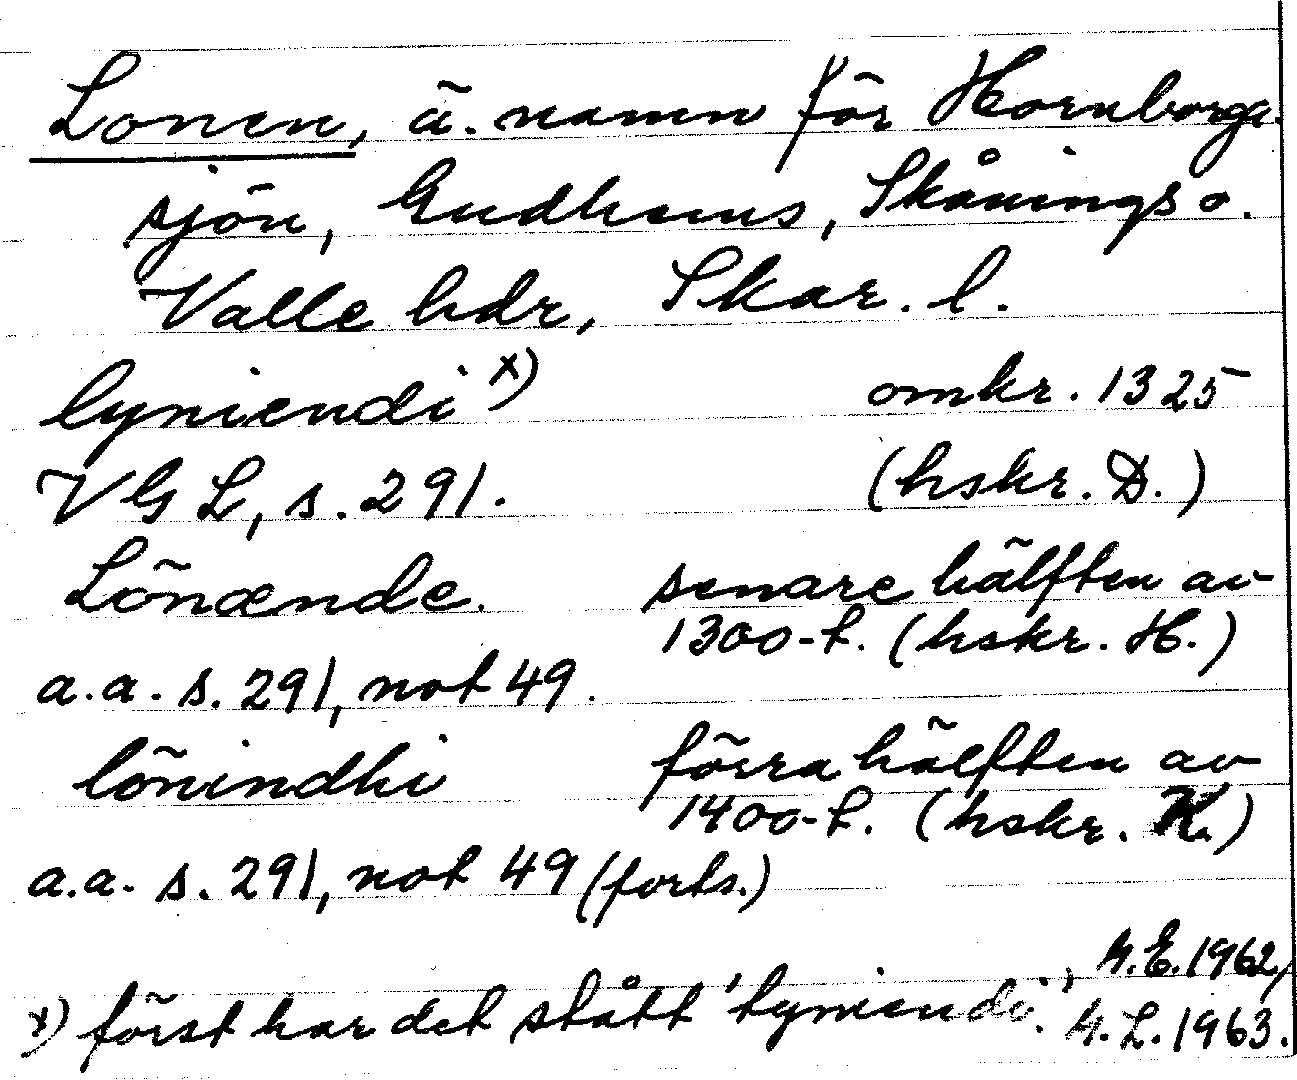 Lonen, ä. namn för Hornborga-
sjön, Gudhems, Skånings o.
Valle hdr, Skar. l.
lyniendi x) omkr. 1325
VGL, s. 291. (hskr. D.)
Lönænde. senare hälften av
1300-t. (hskr. H.)
a.a. s. 291, not 49.
lönindhi förra hälften av
1400-t. (hskr. K.)
a.a. s. 291, not 49 (forts.)
x) först har det stått 'tyniendi'.
1962,
1963.